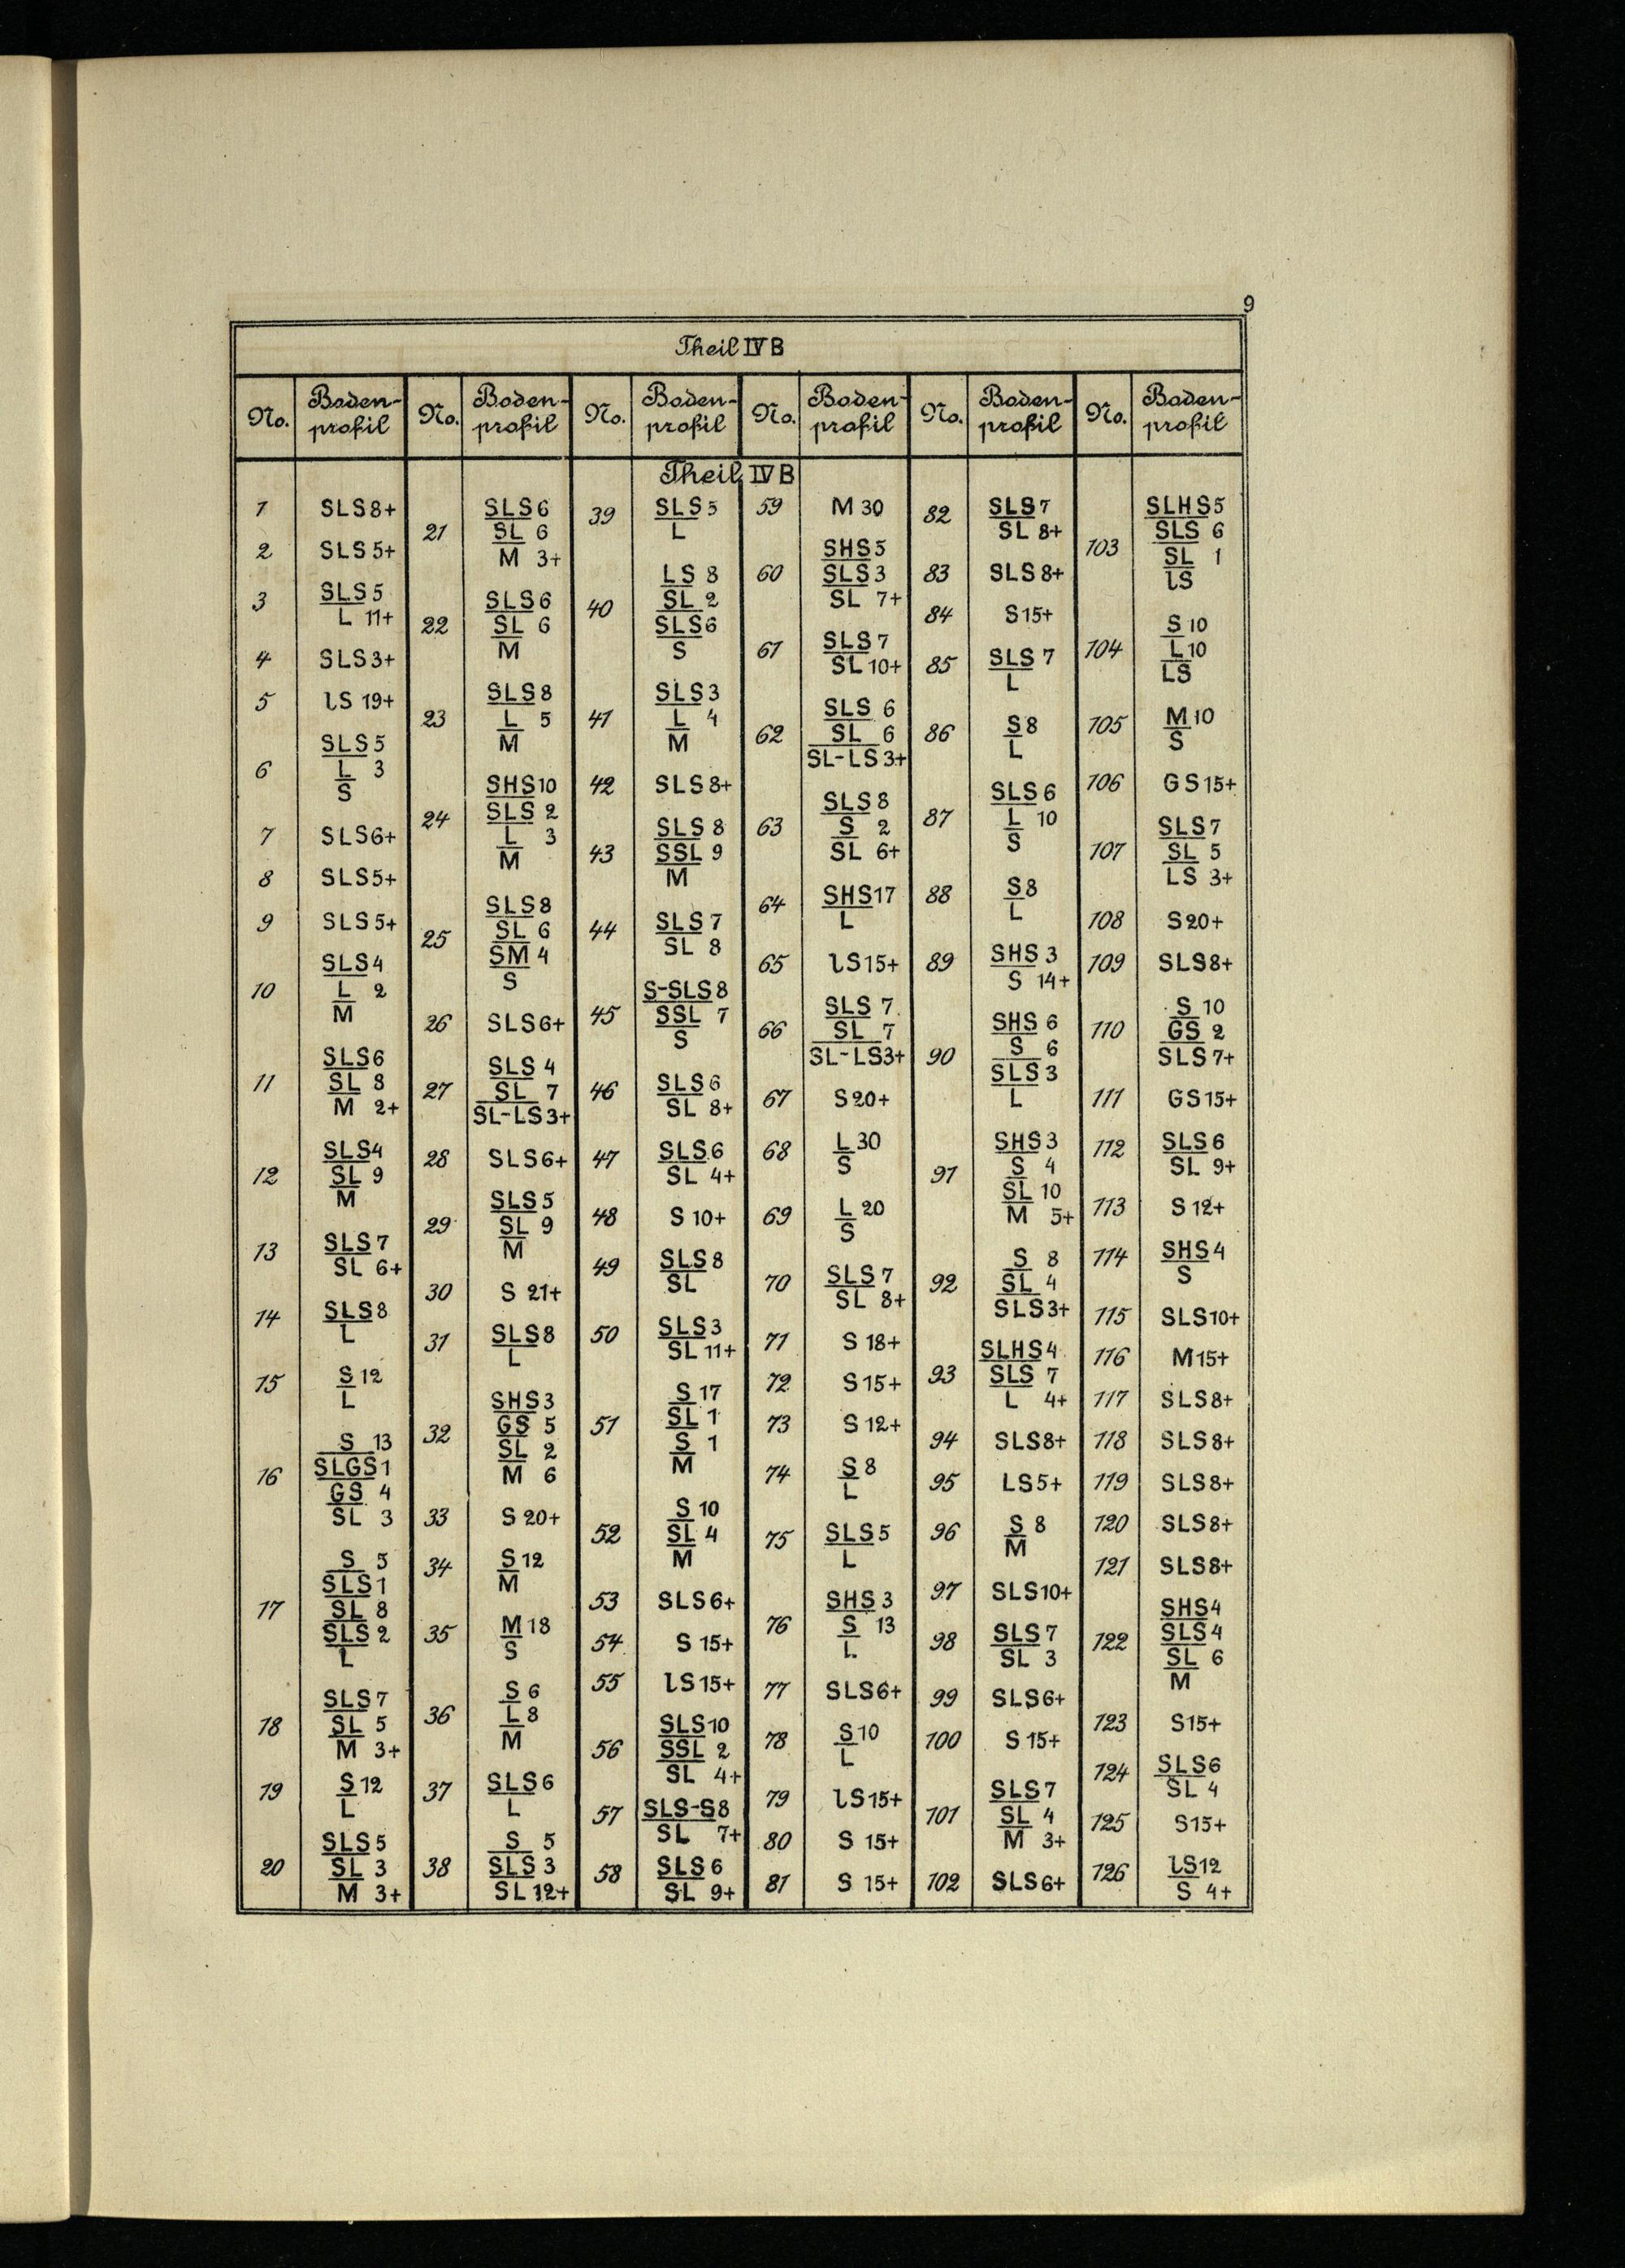 9
Theil IV B
No. Boden- profil No. Boden- profil No. Boden- profil No. Boden- profil No. Boden- profil No. Boden- profil
Theil IV B
1 SLS 8+
2 SLS 5+
3 SLS 5
L 11+
4 SLS 3+
5 lS 19+
6 SLS 5
L 3
S
7 SLS 6+
8 SLS 5+
9 SLS 5+
10 SLS 4
L 2
M
11 SLS 6
SL 8
M 2+
12 SLS 4
SL 9
M
13 SLS 7
SL 6+
14 SLS 8
L
15 S 12
L
16 S 13
SLGS 1
GS 4
SL 3
17 S 5
SLS 1
SL 8
SLS 2
L
18 SLS 7
SL 5
M 3+
19 S 12
L
20 SLS 5
SL 3
M 3+
21 SLS 6
SL 6
M 3+
22 SLS 6
SL 6
M
23 SLS 8
L 5
M
24 SHS 10
SLS 2
L 3
M
25 SLS 8
SL 6
SM 4
S
26 SLS 6+
27 SLS 4
SL 7
SL-LS 3+
28 SLS 6+
29 SLS 5
SL 9
M
30 S 21+
31 SLS 8
L
32 SHS 3
GS 5
SL 2
M 6
33 S 20+
34 S 12
M
35 M 18
S
36 S 6
L 8
M
37 SLS 6
L
38 S 5
SLS 3
SL 12+
39 SLS 5
L
40 LS 8
SL 2
SLS 6
S
41 SLS 3
L 4
M
42 SLS 8+
43 SLS 8
SSL 9
M
44 SLS 7
SL 8
45 S-SLS 8
SSL 7
S
46 SLS 6
SL 8+
47 SLS 6
SL 4+
48 S 10+
49 SLS 8
SL
50 SLS 3
SL 11+
51 S 17
SL 1
S 1
M
52 S 10
SL 4
M
53 SLS 6+
54 S 15+
55 lS 15+
56 SLS 10
SSL 2
SL 4+
57 SLS-S 8
SL 7+
58 SLS 6
SL 9+
59 M 30
60 SHS 5
SLS 3
SL 7+
61 SLS 7
SL 10+
62 SLS 6
SL 6
SL-LS 3+
63 SLS 8
S 2
SL 6+
64 SHS 17
L
65 lS 15+
66 SLS 7
SL 7
SL-LS 3+
67 S 20+
68 L 30
S
69 L 20
S
70 SLS 7
SL 8+
71 S 18+
72 S 15+
73 S 12+
74 S 8
L
75 SLS 5
L
76 SHS 3
S 13
L
77 SLS 6+
78 S 10
L
79 lS 15+
80 S 15+
81 S 15+
82 SLS 7
SL 8+
83 SLS 8+
84 S 15+
85 SLS 7
L
86 S 8
L
87 SLS 6
L 10
S
88 S 8
L
89 SHS 3
S 14+
90 SHS 6
S 6
SLS 3
L
91 SHS 3
S 4
SL 10
M 5+
92 S 8
SL 4
SLS 3+
93 SLHS 4
SLS 7
L 4+
94 SLS 8+
95 LS 5+
96 S 8
M
97 SLS 10+
98 SLS 7
SL 3
99 SLS 6+
100 S 15+
101 SLS 7
SL 4
M 3+
102 SLS 6+
103 SLHS 5
SLS 6
SL 1
lS
104 S 10
L 10
LS
105 M 10
S
106 GS 15+
107 SLS 7
SL 5
LS 3+
108 S 20+
109 SLS 8+
110 S 10
GS 2
SLS 7+
111 GS 15+
112 SLS 6
SL 9+
113 S 12+
114 SHS 4
S
115 SLS 10+
116 M 15+
117 SLS 8+
118 SLS 8+
119 SLS 8+
120 SLS 8+
121 SLS 8+
122 SHS 4
SLS 4
SL 6
M
123 S 15+
124 SLS 6
SL 4
125 S 15+
126 lS 12
S 4+